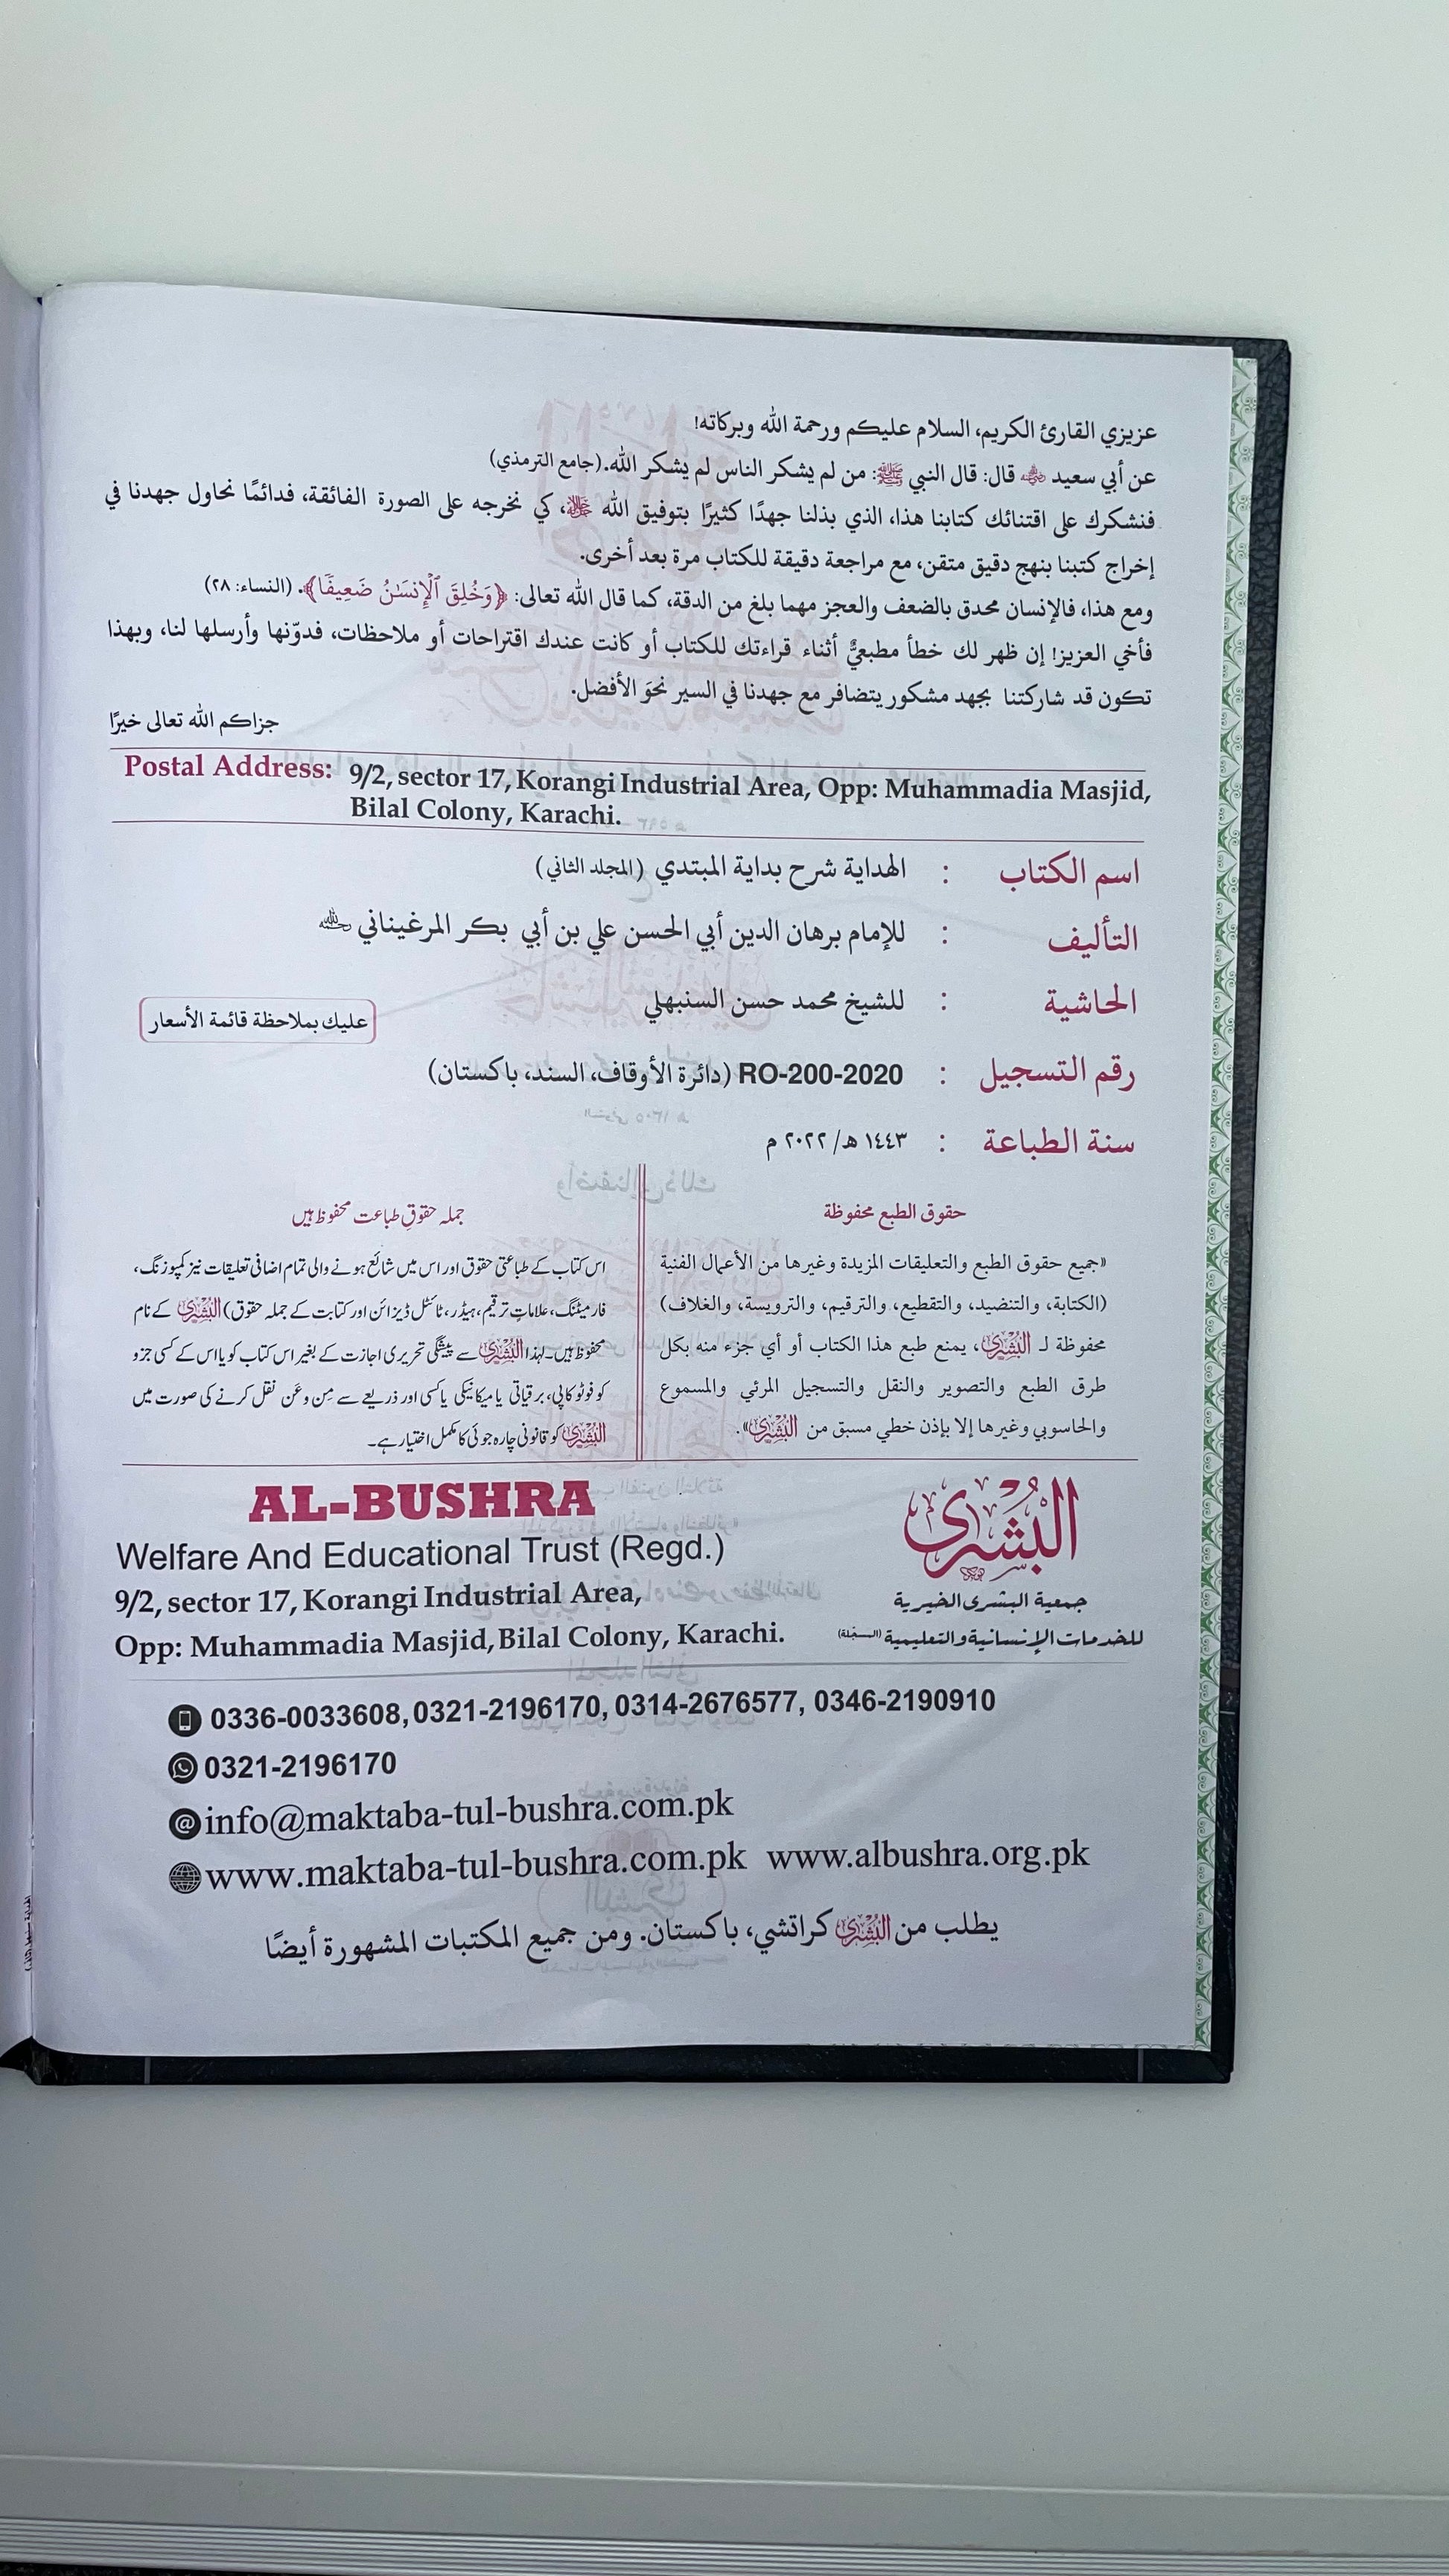 عزيزي القارئ الكريم، السلام عليكم ورحمة الله وبركاته!
عن أبي سعيد رضي الله عنه قال: قال النبي ﷺ: من لم يشكر الناس لم يشكر الله. (جامع الترمذي)
فنشكرك على اقتنائك كتابنا هذا، الذي بذلنا جهدًا كثيرًا بتوفيق الله ﷻ، كي نخرجه على الصورة الفائقة، فدائمًا نحاول جهدنا في
إخراج كتبنا بنهج دقيق متقن، مع مراجعة دقيقة للكتاب مرة بعد أخرى.
ومع هذا، فالإنسان محدق بالضعف والعجز مهما بلغ من الدقة، كما قال الله تعالى: ﴿وَخُلِقَ ٱلْإِنسَٰنُ ضَعِيفًا﴾. (النساء: ٢٨)
فأخي العزيز! إن ظهر لك خطأ مطبعيٌّ أثناء قراءتك للكتاب أو كانت عندك اقتراحات أو ملاحظات، فدوّنها وأرسلها لنا، وبهذا
تكون قد شاركتنا بجهد مشكور يتضافر مع جهدنا في السير نحوَ الأفضل.
جزاكم الله تعالى خيرًا
Postal Address: 9/2, sector 17, Korangi Industrial Area, Opp: Muhammadia Masjid,
Bilal Colony, Karachi.
اسم الكتاب : الهداية شرح بداية المبتدي (المجلد الثاني)
التأليف : للإمام برهان الدين أبي الحسن علي بن أبي بكر المرغيناني رحمه الله
الحاشية : للشيخ محمد حسن السنبهلي
عليك بملاحظة قائمة الأسعار
رقم التسجيل : RO-200-2020 (دائرة الأوقاف، السند، باكستان)
سنة الطباعة : ١٤٤٣ هـ/ ٢٠٢٢ م
حقوق الطبع محفوظة
«جميع حقوق الطبع والتعليقات المزيدة وغيرها من الأعمال الفنية
(الكتابة، والتنضيد، والتقطيع، والترقيم، والترويسة، والغلاف)
محفوظة لـ البُشرى، يمنع طبع هذا الكتاب أو أي جزء منه بكل
طرق الطبع والتصوير والنقل والتسجيل المرئي والمسموع
والحاسوبي وغيرها إلا بإذن خطي مسبق من البُشرى».
جملہ حقوقِ طباعت محفوظ ہیں
اس کتاب کے طباعتی حقوق اور اس میں شائع ہونے والی تمام اضافی تعلیقات نیز کمپوزنگ،
فارمیٹنگ، علاماتِ ترقیم، ہیڈر، ٹائٹل ڈیزائن اور کتابت کے جملہ حقوق) البُشریٰ کے نام
محفوظ ہیں۔ لہٰذا البُشریٰ سے پیشگی تحریری اجازت کے بغیر اس کتاب کو یا اس کے کسی جزو
کو فوٹو کاپی، برقیاتی یا میکانیکی یا کسی اور ذریعے سے مِن وعَن نقل کرنے کی صورت میں
البُشریٰ کو قانونی چارہ جوئی کا مکمل اختیار ہے۔
AL-BUSHRA
Welfare And Educational Trust (Regd.)
9/2, sector 17, Korangi Industrial Area,
Opp: Muhammadia Masjid, Bilal Colony, Karachi.
البُشرى
جمعية البشرى الخيرية
للخدمات الإنسانية والتعليمية (المسجّلة)
0336-0033608, 0321-2196170, 0314-2676577, 0346-2190910
0321-2196170
info@maktaba-tul-bushra.com.pk
www.maktaba-tul-bushra.com.pk www.albushra.org.pk
يطلب من البُشرى كراتشي، باكستان. ومن جميع المكتبات المشهورة أيضًا